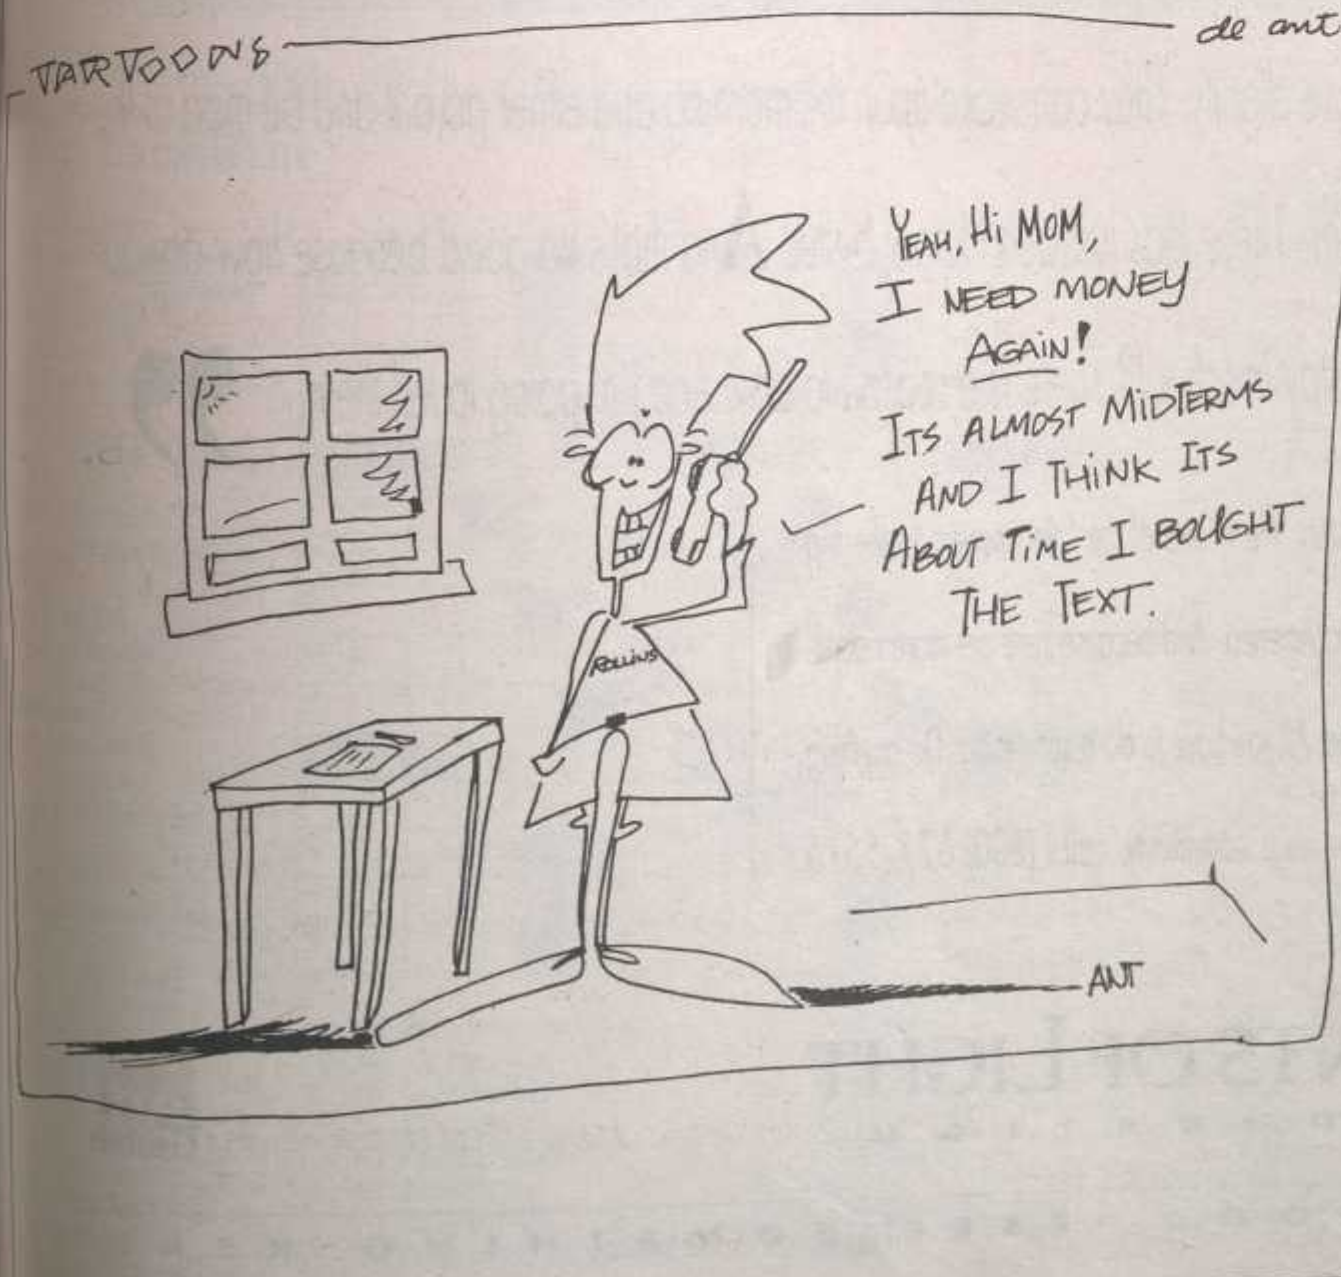 TARTOONS
de ant
YEAH, Hi MOM,
I NEED MONEY
AGAIN!
ITS ALMOST MiDTERMS
AND I THiNK ITS
ABOUT TiME I BOUGHT
THE TEXT.
ROLLiNS
ANT